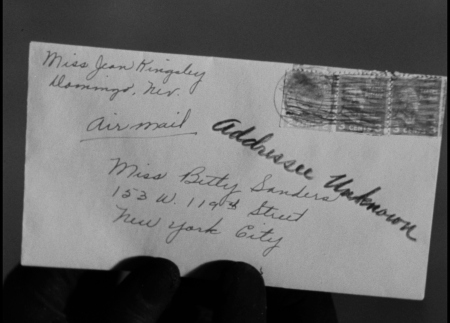 Miss Jean Kingsley
Domingo, Nev.
Air mail
Addressee Unknown
Miss Betty Sanders
153 W. 119th Street
New York City